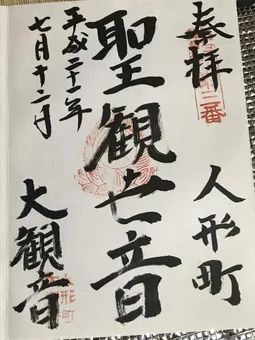 奉拝
人形町
聖観世音
平成二十一年
七月十二日
大観音